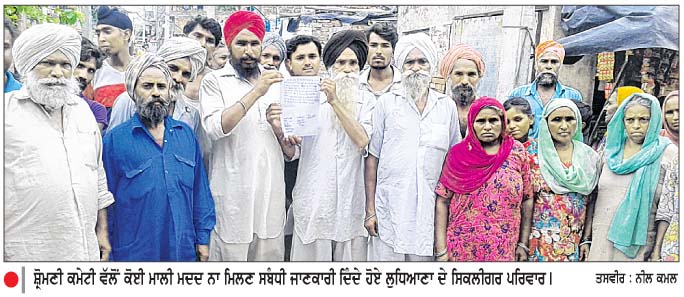 ਸ਼੍ਰੋਮਣੀ ਕਮੇਟੀ ਵੱਲੋਂ ਕੋਈ ਮਾਲੀ ਮਦਦ ਨਾ ਮਿਲਣ ਸਬੰਧੀ ਜਾਣਕਾਰੀ ਦਿੰਦੇ ਹੋਏ ਲੁਧਿਆਣਾ ਦੇ ਸਿਕਲੀਗਰ ਪਰਿਵਾਰ। ਤਸਵੀਰ : ਨੀਲ ਕਮਲ